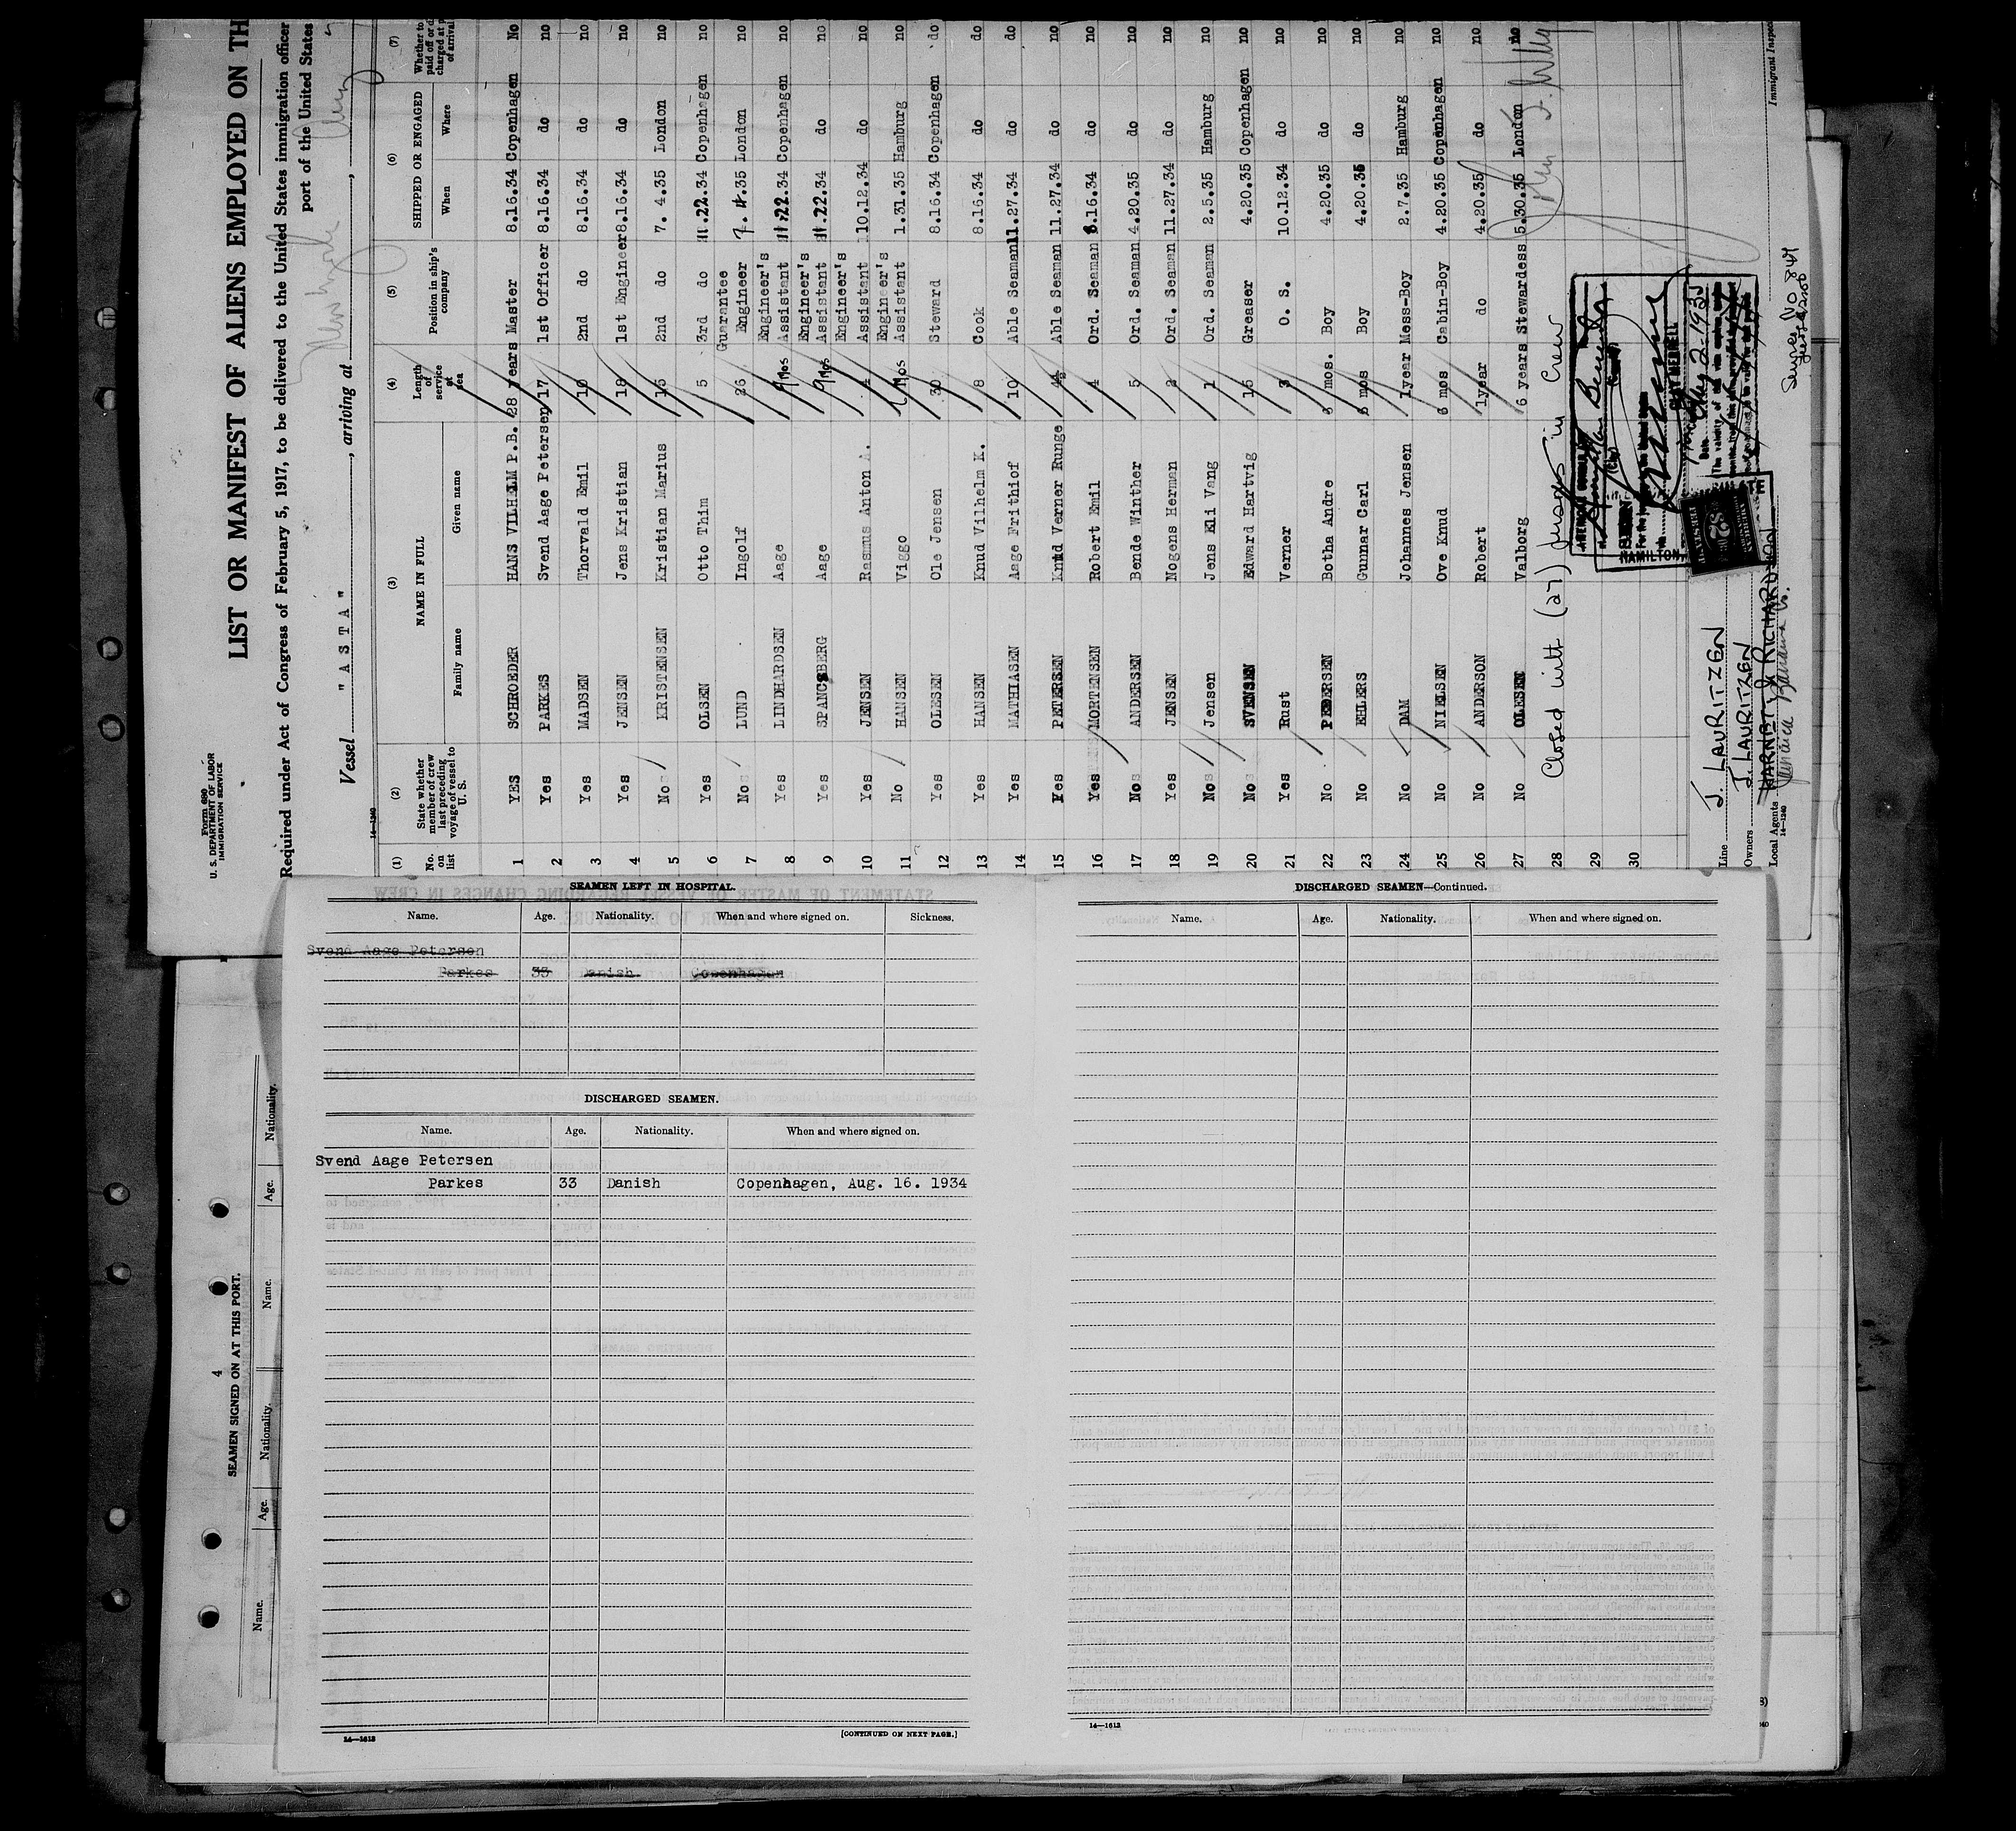 Form 680
U. S. DEPARTMENT OF LABOR
IMMIGRATION SERVICE
LIST OR MANIFEST OF ALIENS EMPLOYED ON TH
Required under Act of Congress of February 5, 1917, to be delivered to the United States immigration officer
port of the United States
Vessel "ASTA", arriving at
14—1240
(1) (2) (3) (4) (5) (6) (7)
No. on list State whether member of crew last preceding voyage of vessel to U. S. NAME IN FULL Length of service at sea Position in ship's company SHIPPED OR ENGAGED Whether to paid off or charged at of arrival
Family name Given name When Where
1 YES SCHROEDER HANS VILHELM P.B. 28 years Master 8.16.34 Copenhagen No
2 Yes PARKES Svend Aage Petersen 17 1st Officer 8.16.34 do no
3 Yes MADSEN Thorvald Emil 10 2nd do 8.16.34 do no
4 Yes JENSEN Jens Kristian 18 1st Engineer 8.16.34 do no
5 No KRISTENSEN Kristian Marius 15 2nd do 7. 4.35 London no
6 Yes OLSEN Otto Thim 5 3rd do 11.22.34 Copenhagen no
7 No LUND Ingolf 26 Guarantee Engineer 7. 4.35 London no
8 Yes LINDHARDSEN Aage 9 Mos Engineer's Assistant 11.22.34 Copenhagen no
9 Yes SPANGSBERG Aage 9 Mos Engineer's Assistant 11.22.34 do no
10 Yes JENSEN Rasmus Anton A. 4 Engineer's Assistant 10.12.34 do no
11 No HANSEN Viggo Mos Engineer's Assistant 1.31.35 Hamburg no
12 Yes OLESEN Ole Jensen 30 Steward 8.16.34 Copenhagen do
13 Yes HANSEN Knud Vilhelm K. 8 Cook 8.16.34 do do
14 Yes MATHIASEN Aage Frithiof 10 Able Seaman 11.27.34 do do
15 Yes PETERSEN Knud Verner Runge Able Seaman 11.27.34 do no
16 Yes MORTENSEN Robert Emil 4 Ord. Seaman 8.16.34 do no
17 No ANDERSEN Bende Winther 5 Ord. Seaman 4.20.35 do no
18 Yes JENSEN Mogens Herman 2 Ord. Seaman 11.27.34 do no
19 No Jensen Jens Eli Vang 1 Ord. Seaman 2.5.35 Hamburg no
20 No SVENSEN Edward Hartvig 15 Greaser 4.20.35 Copenhagen no
21 Yes Rust Verner 3 O. S. 10.12.34 do no
22 No PEDERSEN Botha Andre mos. Boy 4.20.35 do no
23 No EHLERS Gunnar Carl 6 mos Boy 4.20.35 do no
24 No DAM Johannes Jensen 1year Mess-Boy 2.7.35 Hamburg no
25 No NIELSEN Ove Knud 6 mos Cabin-Boy 4.20.35 Copenhagen no
26 No ANDERSON Robert 1year do 4.20.35 do no
27 No OLESEN Valborg 6 years Stewardess 5.30.35 London no
28 Closed with (27) in Crew
29
30
HAMILTON,
Line J. LAURITZEN
Owners J. LAURITZEN
Local Agents HARNETT & RICHARDSON
14—1240
Immigrant Inspec
SEAMEN LEFT IN HOSPITAL.
Name. Age. Nationality. When and where signed on. Sickness.
Svend Aage Petersen
Parkes 33 Danish Copenhagen
DISCHARGED SEAMEN.
Name. Age. Nationality. When and where signed on.
Svend Aage Petersen
Parkes 33 Danish Copenhagen, Aug. 16. 1934
14—1613
[CONTINUED ON NEXT PAGE.]
DISCHARGED SEAMEN—Continued.
Name. Age. Nationality. When and where signed on.
14—1613
4
SEAMEN SIGNED ON AT THIS PORT.
Name. Age. Nationality. Name. Age. Nationality.